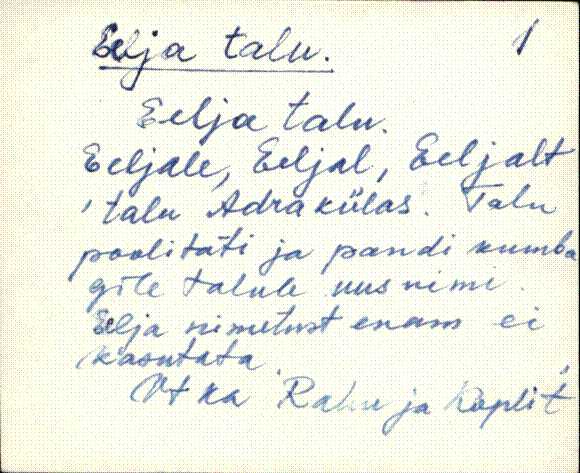 Eelja talu. 1
Eelja talu.
Eeljale, Eeljal, Eeljalt
' talu Adra külas. Talu
poolitati ja pandi kumba
gile talule uus nimi.
Eelja nimetust enam ei
kasutata.
Vt ka Rahu ja Koplit